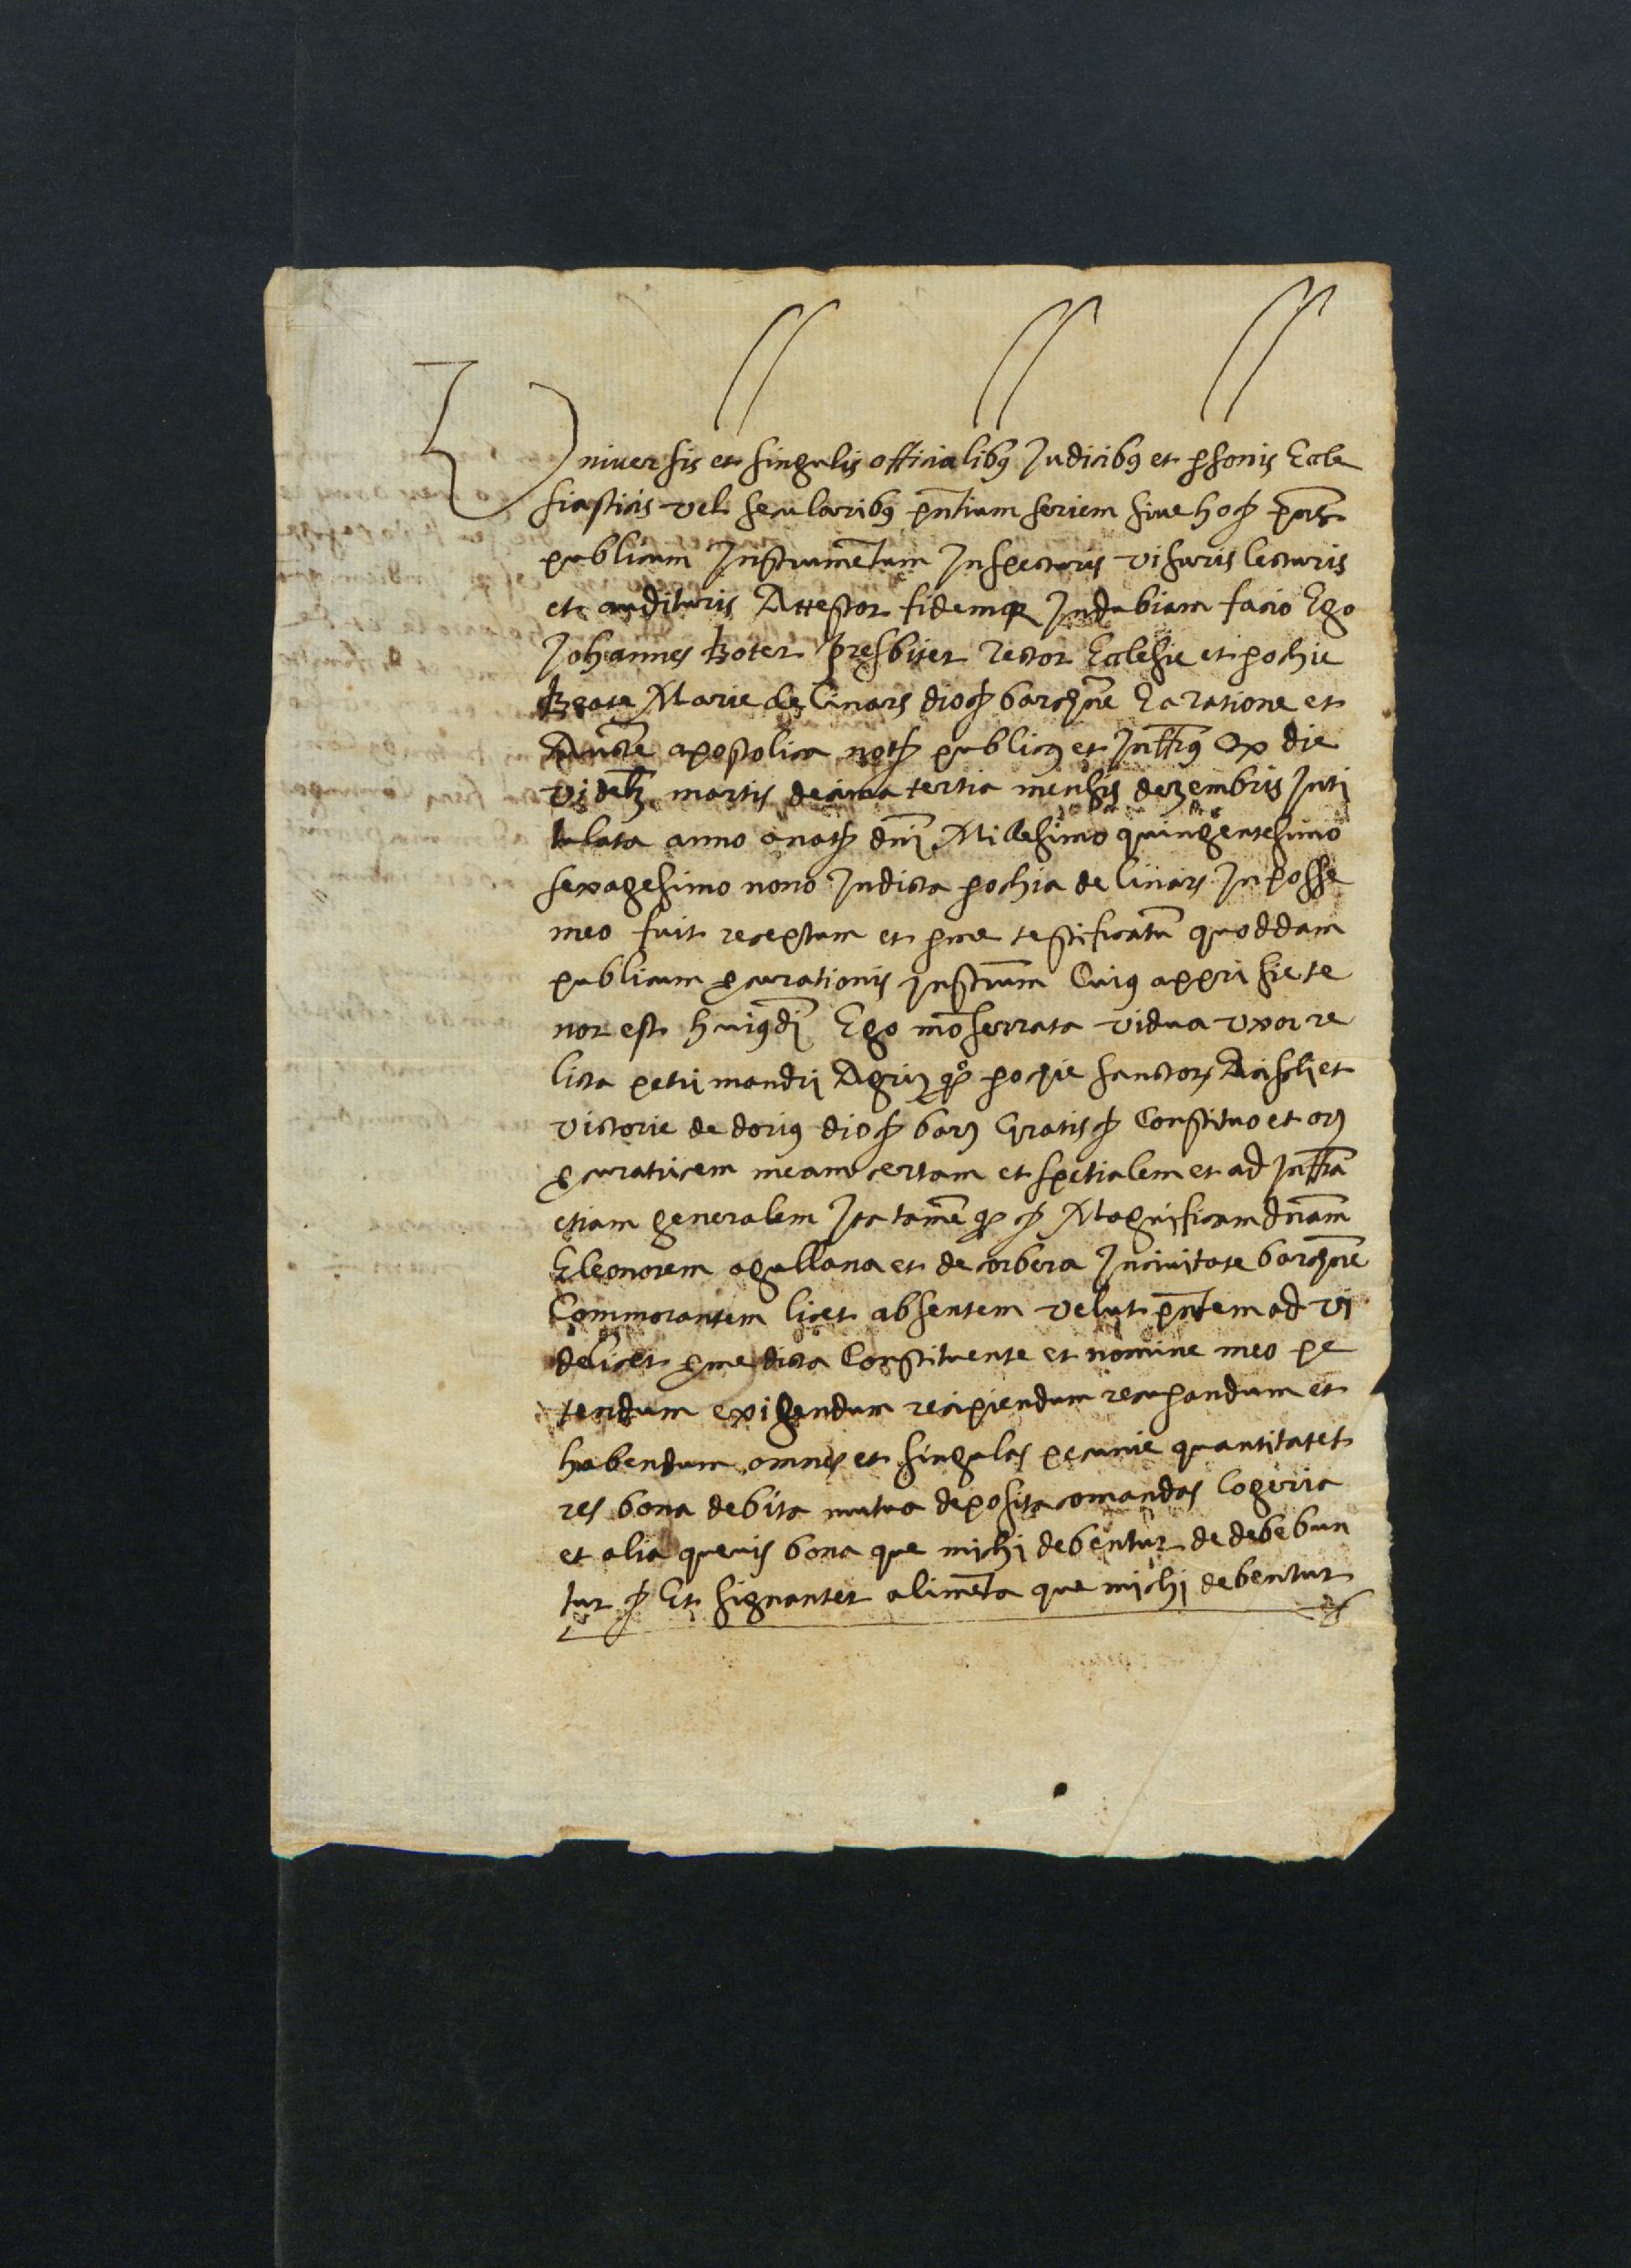 Universis et singulis officialibus Judicibus et psonis Eccle
siasticis vel secularibus pntium seriem sive hoc pns
publicum Instrumentum Inspecturis visuris lecturis
et audituris Attestor fidemque Indubiam facio Ego
Johannes Boter presbiter Rector Ecclesie et pochie
Beate Marie de linars dioc barchne Ea ratione et
Aucte apostolica not publicus et Inffus Qp die
videlz martis decima tertia mensis dezembris Inti
tulata anno a nat dni Millesimo quingentesimo
sexagesimo nono In dicta pochia de linars In posse
meo fuit receptum et p me testificatu quoddam
publicum pcurationis Instrum Cuius appri sie te
nor est huiusdi Ego moserrata vidua uxor re
licta petri mandri Agri qo pochie sanctor Aciscli et
victorie de dorius dioc barn Gratis Constituo et or
pcuratricem meam certam et spetialem et ad Inffra
etiam generalem Ita tame q Magnificam dnam
Eleonorem agullana et de corbera In civitate barchne
Commorantem licet absentem velut pntem ad vi
delicet p me dicta Constituente et nomine meo pe
tendum exigendum recipiendum recupandum et
habendum omnes et singulas pecunie quantitatet
res bona debita mutua deposita comandas logeria
et alia quevis bona que michi debentur de debebun
tur Et signanter alimeta que michi debentur